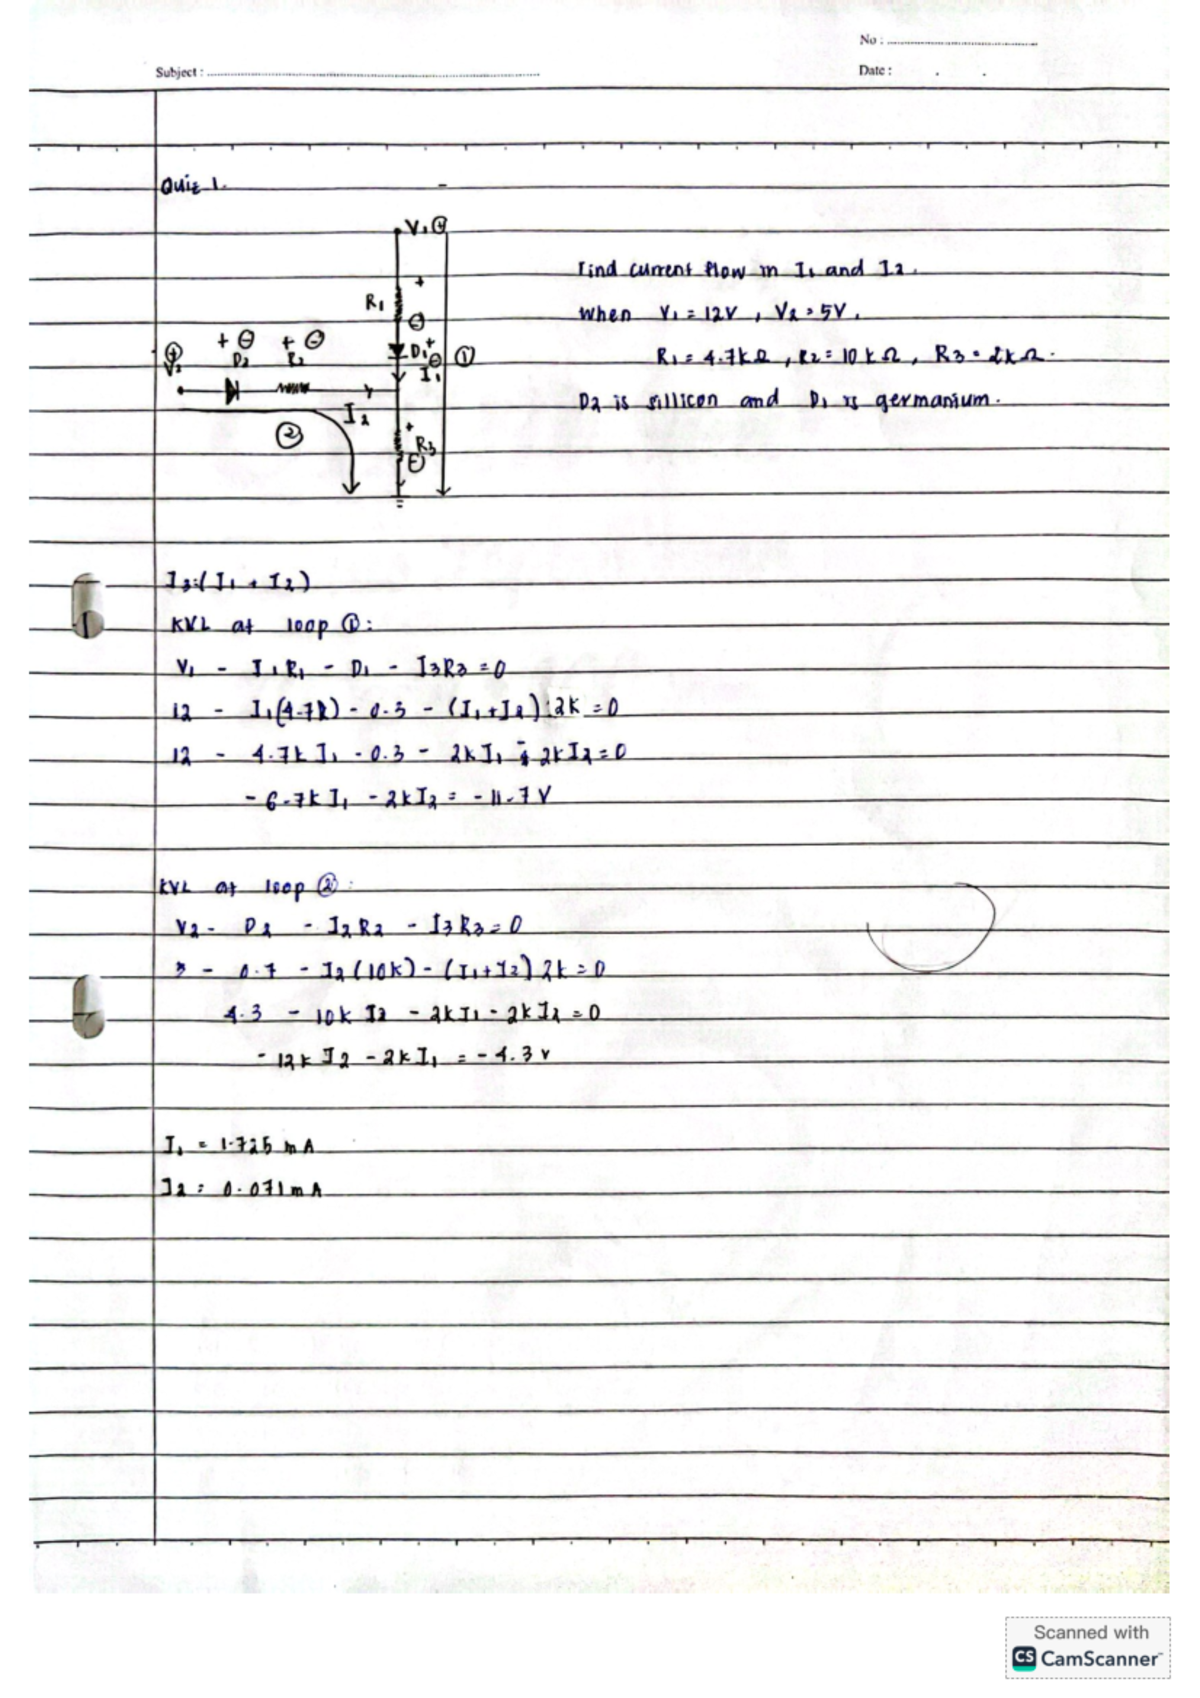 No :
Subject :
Date :
Quiz 1.
V₁ ⊕
R₁ +
⊖
+ ⊖ + ⊖
⊕ D₂ R₂ D₁ + ⊖ ①
V₂ I₁
I₂
② + R₃
⊖
Find current flow in I₁ and I₂.
When V₁ = 12V , V₂ = 5V.
R₁ = 4.7kΩ , R₂ = 10kΩ , R₃ = 2kΩ.
D₂ is sillicon and D₁ is germanium.
I₃ = (I₁ + I₂)
KVL at loop ① :
V₁ - I₁R₁ - D₁ - I₃R₃ = 0
12 - I₁(4.7k) - 0.3 - (I₁+I₂) 2k = 0
12 - 4.7k I₁ - 0.3 - 2kI₁ - 2kI₂ = 0
- 6.7kI₁ - 2kI₂ = - 11.7 V
KVL at loop ② :
V₂ - D₂ - I₂R₂ - I₃R₃ = 0
5 - 0.7 - I₂(10k) - (I₁+I₂) 2k = 0
4.3 - 10k I₂ - 2kI₁ - 2kI₂ = 0
- 12k I₂ - 2kI₁ = - 4.3 V
I₁ = 1.725 mA
I₂ = 0.071 mA
Scanned with
CS CamScanner